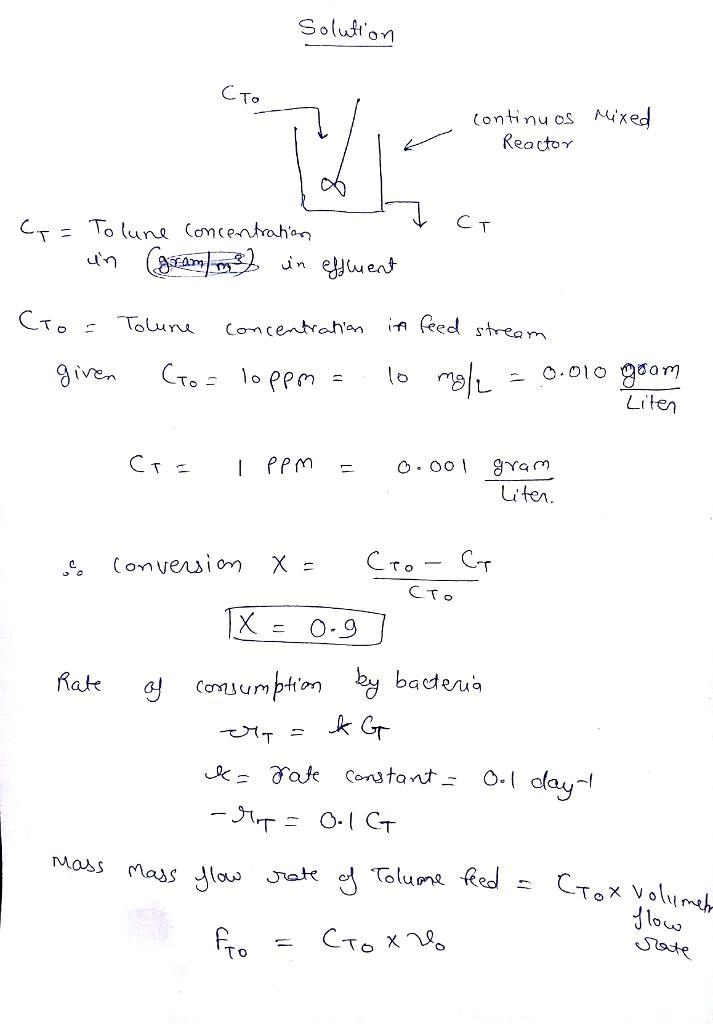 Solution
CTo
continuos Mixed
Reactor
CT
CT = Tolune Concentration
in (gram/m3) in effluent
CTo = Tolune concentration in feed stream
given CTo = 10 ppm = 10 mg/L = 0.010 gram
Liter
CT = 1 PPM = 0.001 gram
Liter.
∴ Conversion X = CTo - CT
CTo
X = 0.9
Rate of consumption by bacteria
-rT = k CT
k = rate constant = 0.1 day-1
-rT = 0.1 CT
Mass Mass flow rate of Tolune feed = CTo x volumetr
flow
rate
FTo = CTo x vo